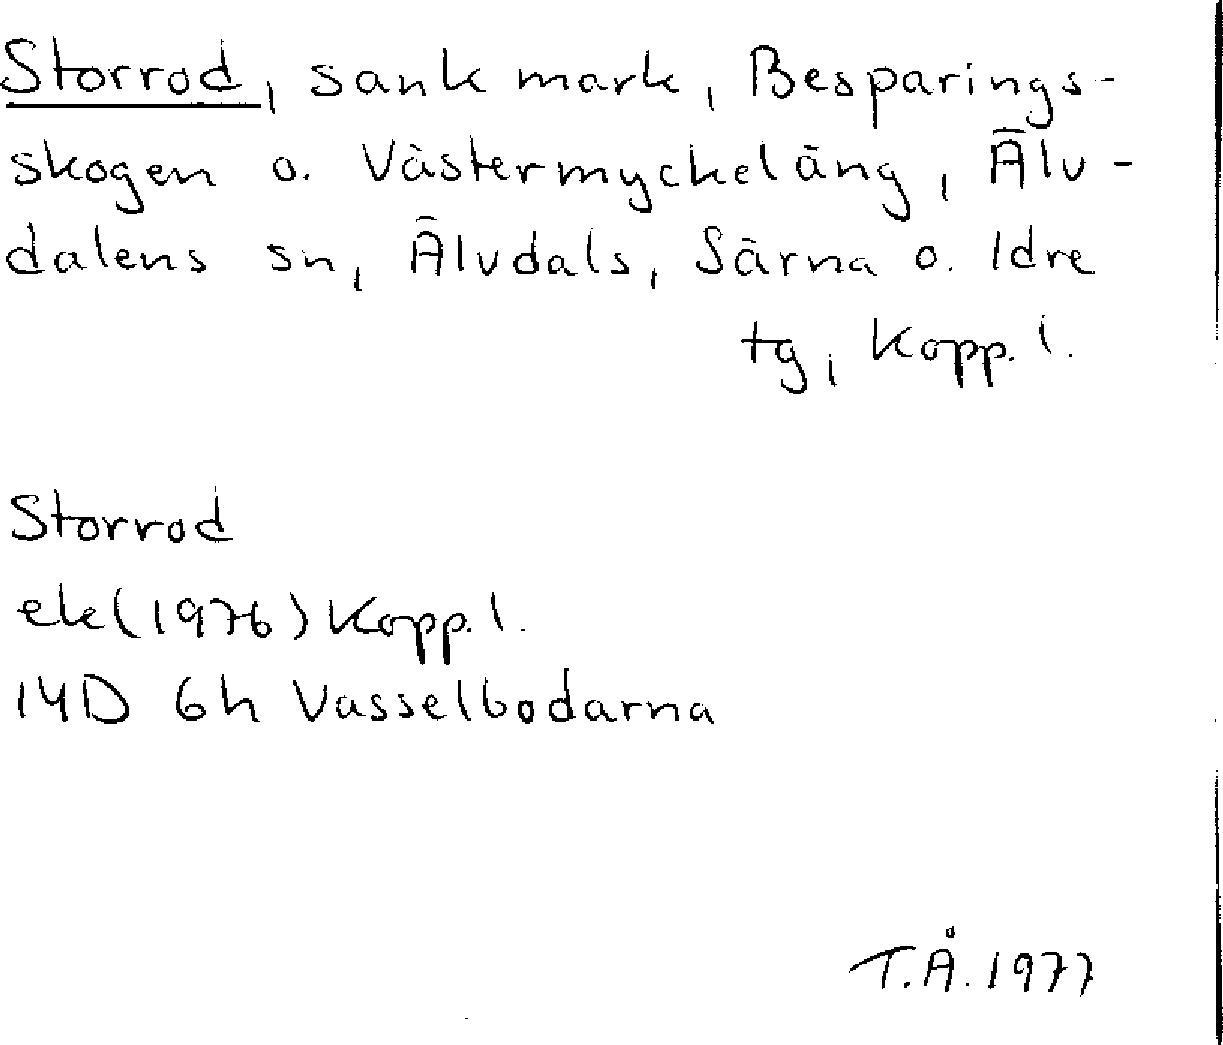 Storrod, sank mark, Besparings-
skogen o. Västermyckeläng, Älv-
dalens sn, Älvdals, Särna o. Idre
tg, Kopp. l.
Storrod
ek (1976) Kopp. l.
14D 6h Vasselbodarna
T.Å. 1977